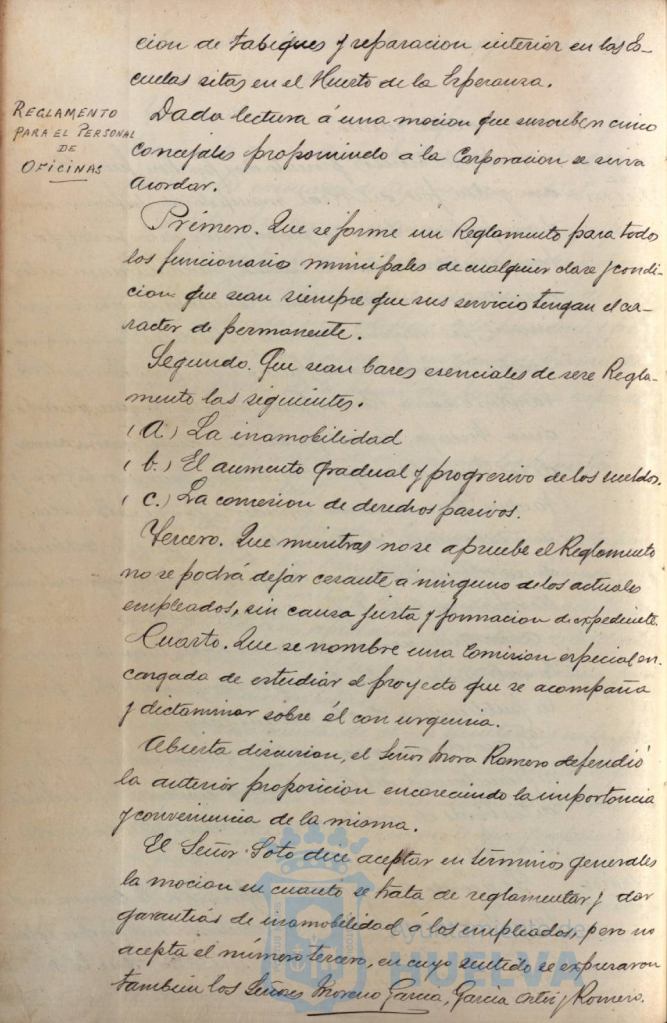 cion de tabiques y reparacion interior en las Es-
cuelas sitas en el Huerto de la Esperanza.
REGLAMENTO
PARA EL PERSONAL
DE
OFICINAS
Dada lectura á una mocion que suscriben cinco
concejales proponiendo á la Corporacion se sirva
acordar.
Primero. Que se forme un Reglamento para todo
los funcionario municipales de cualquier clase y condi-
cion que sean siempre que sus servicio tengan el ca-
racter de permanente.
Segundo. Que sean bases esenciales de ese Regla-
mento las siguientes.
(a.) La inamobilidad
(b.) El aumento gradual y progresivo de los sueldos.
(c.) La concesion de derechos pasivos.
Tercero. Que mientras no se apruebe el Reglamento
no se podrá dejar cesante á ninguno de los actuales
empleados, sin causa justa y formacion de expediente.
Cuarto. Que se nombre una Comision especial en-
cargada de estudiar el proyecto que se acompaña
y dictaminar sobre él con urgencia.
Abierta discusion, el Señor Mora Romero defendió
la anterior proposicion encareciendo la importancia
y conveniencia de la misma.
El Señor Soto dice aceptar en términos generales
la mocion en cuanto se trata de reglamentar y dar
garantias de inamobilidad á los empleados, pero no
acepta el número tercero, en cuyo sentido se expresaron
tambien los Señores Moreno Garcia, Garcia y Romero.
Ayuntamiento de
HUELVA